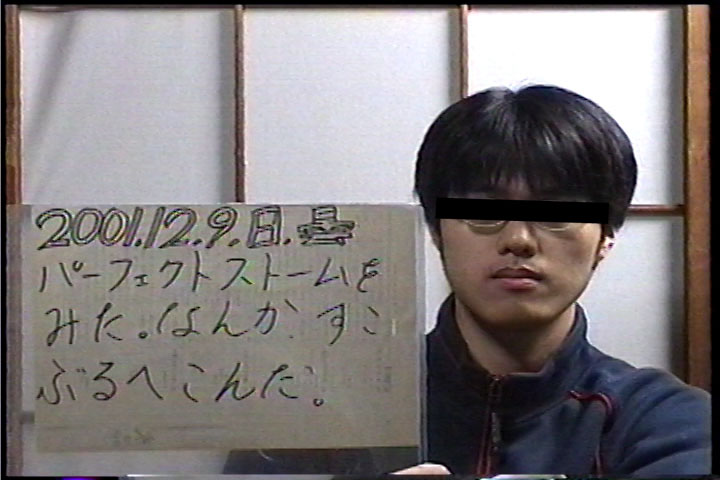 2001.12.9.日.
パーフェクトストームを
みた。なんか、すこ
ぶるへこんだ。